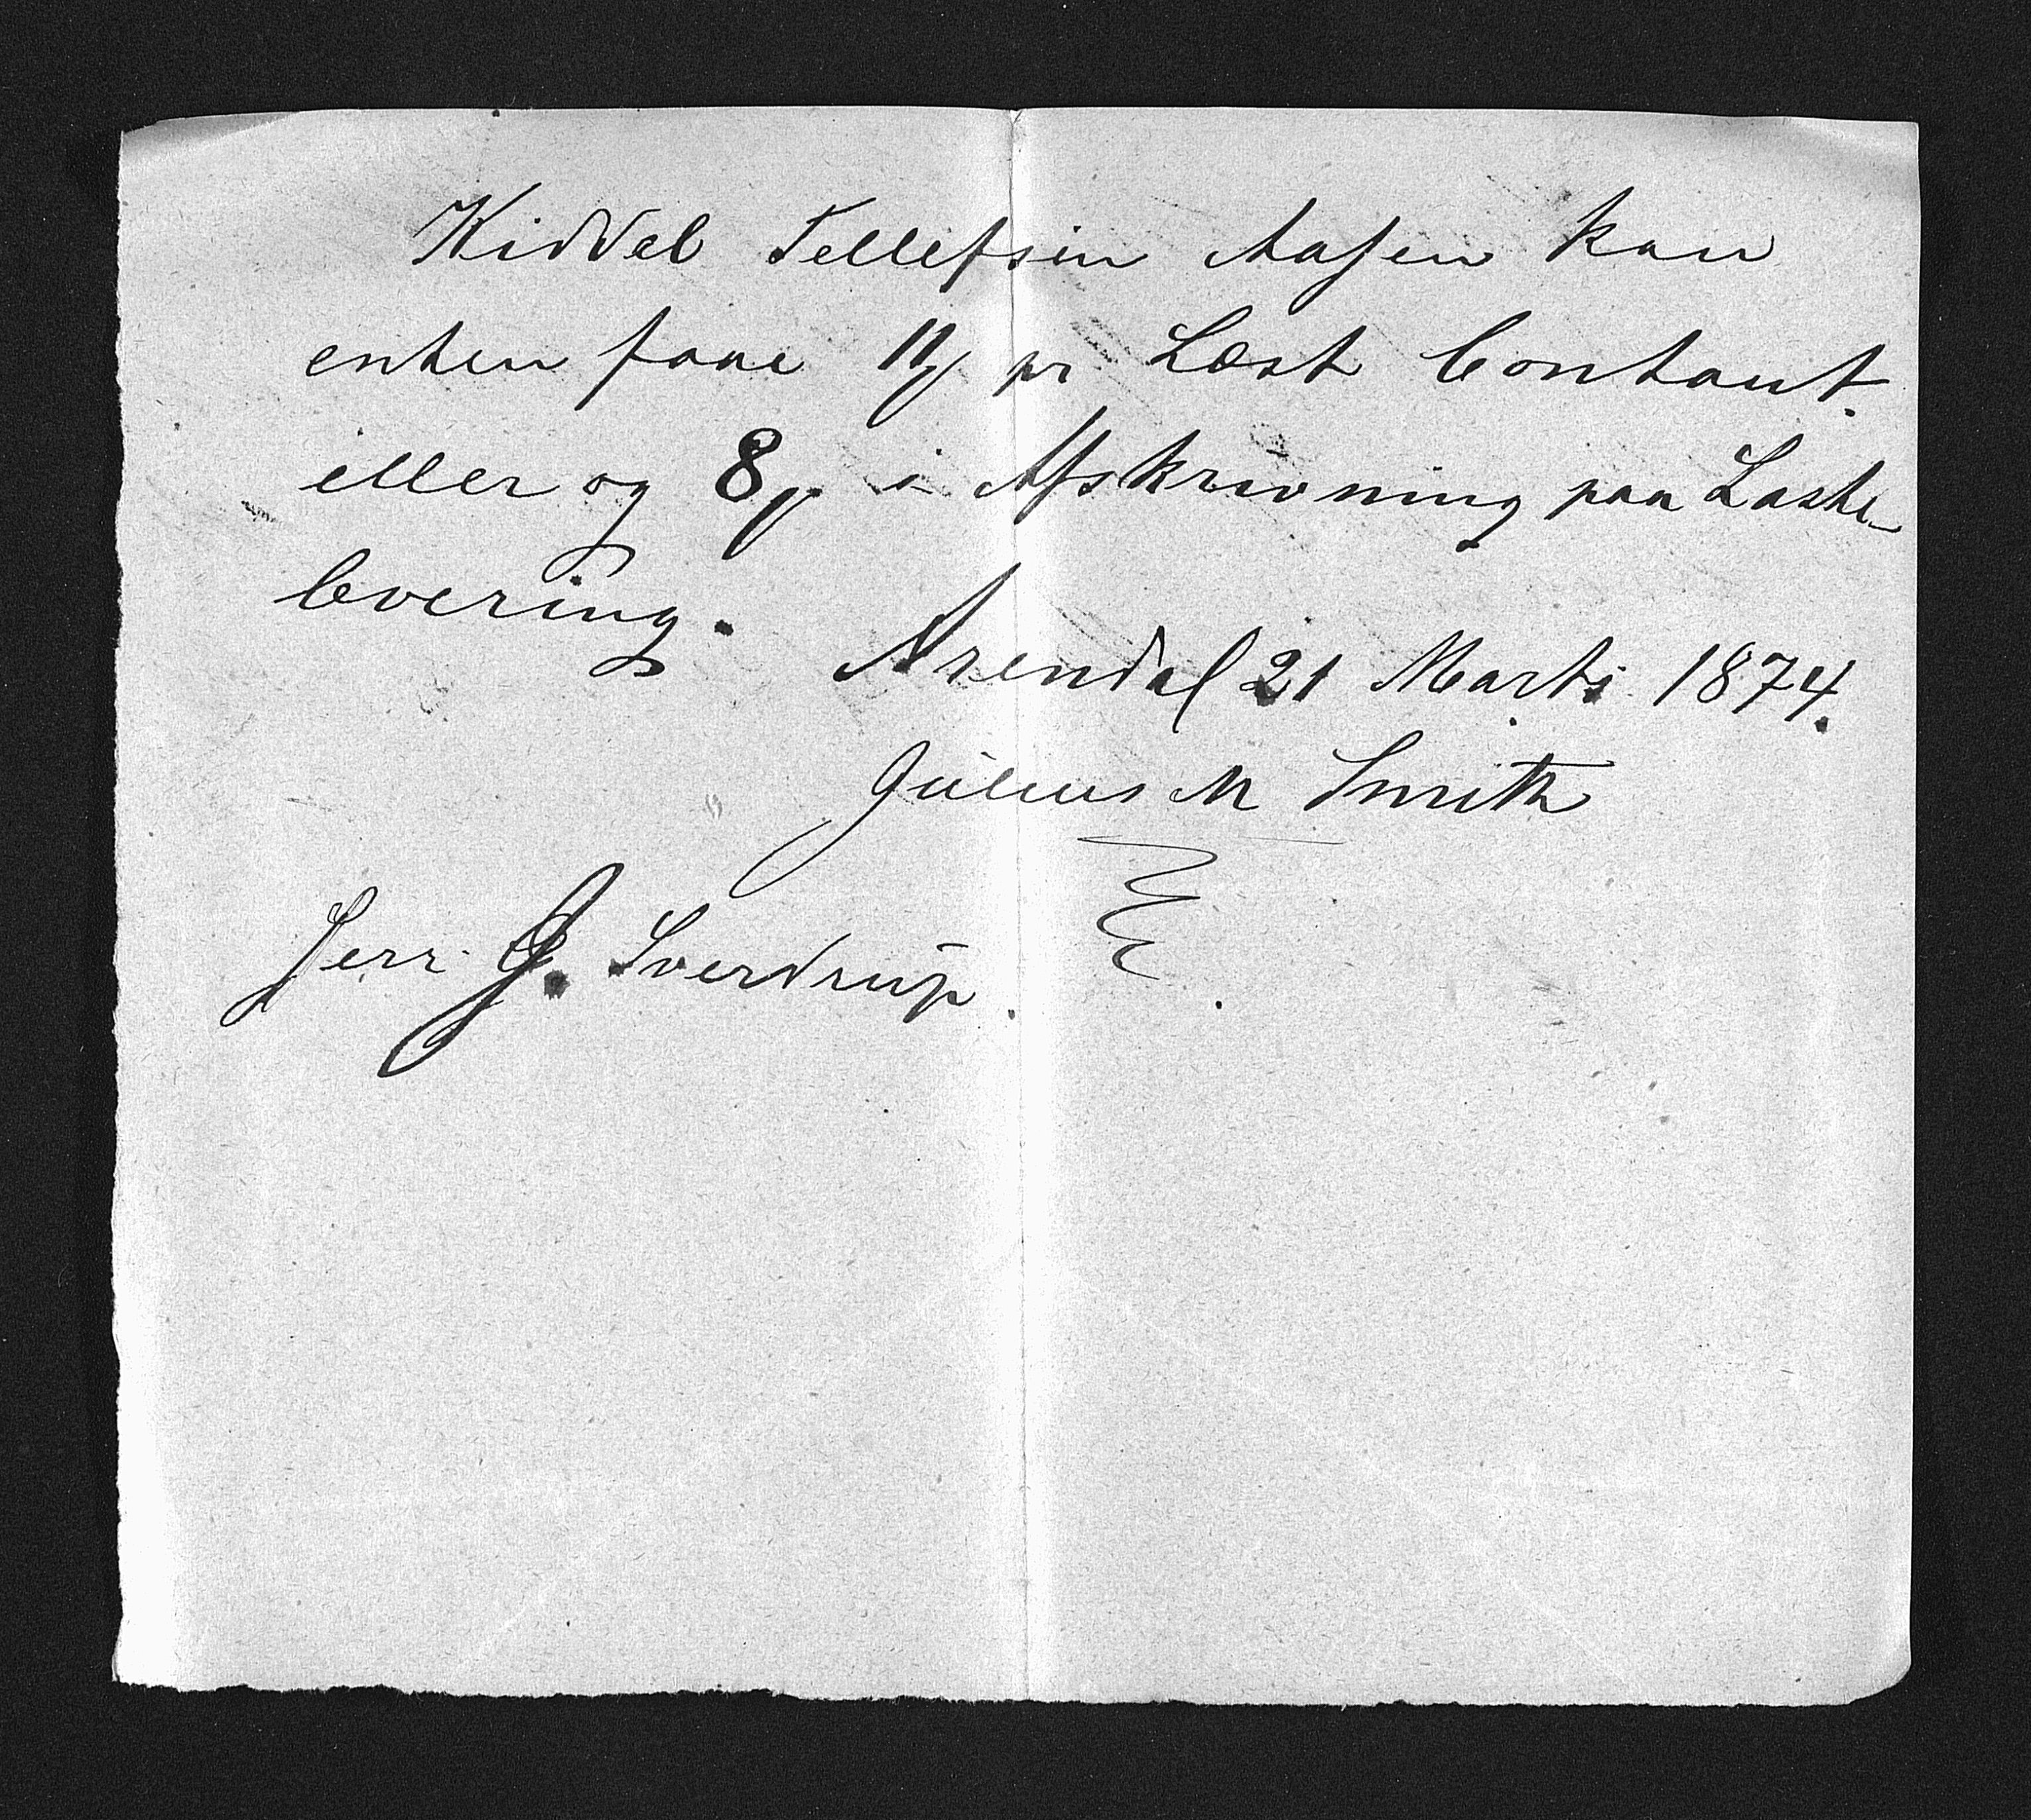 Kiddel Tellefsen Aasen kan
enten faae 11/ pr Læst Contant.
eller og 8/ i Afskrivning paa Laste-
levering.
Arendal 21 Marts 1874.
Julius M Smith
Herr J. Sverdrup.